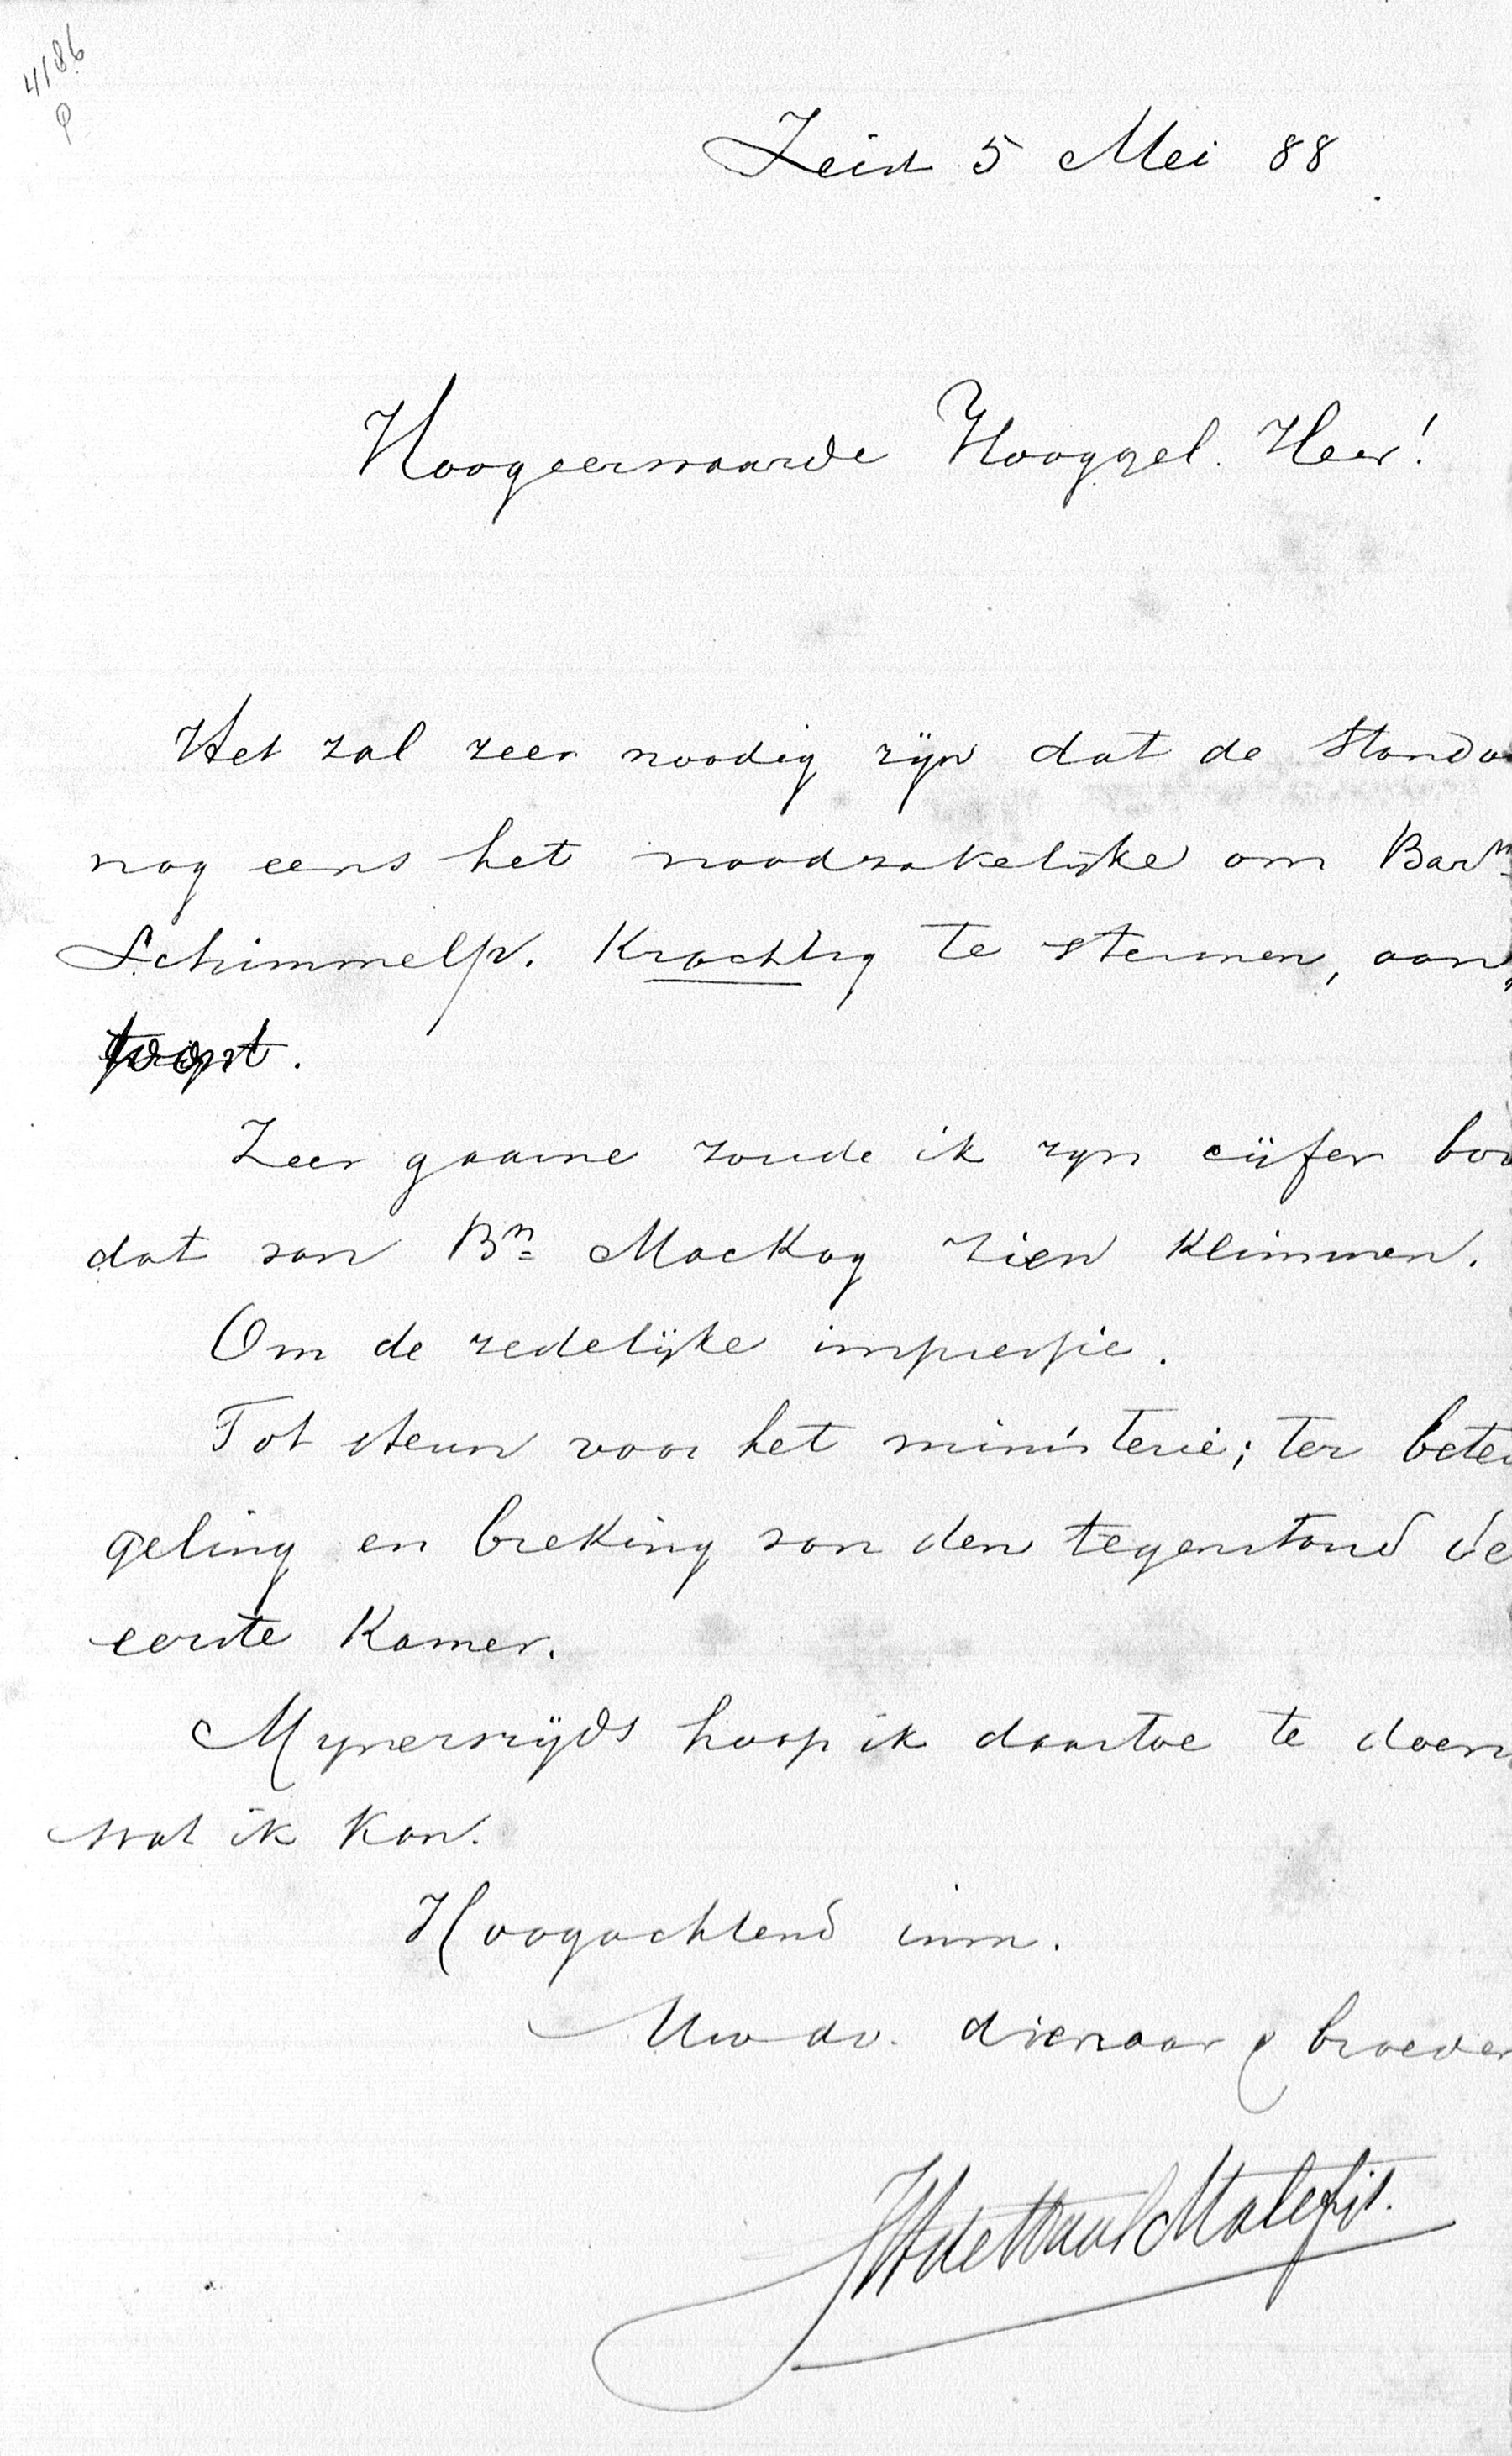 4186
Leid 5 Mei 88
Hoogeerwaarde Hooggel. Heer!
Het zal zeer noodig zijn dat de Standa
nog eens het noodzakelijke om Barn
Schimmelp. Krachtig te steunen, aan
toont.
Zeer gaarne zoude ik zyn cijfer bov
dat van Bn Mackay zien klimmen.
Om de zedelijke impressie.
Tot steun voor het ministerie; ter beteu
geling en breking van den tegenstand de
eerste Kamer.
Mynerzijds hoop ik daartoe te doen
wat ik kan.
Hoogachtend inm.
Uw dv. dienaar & broeder
de Waal Malefijt.